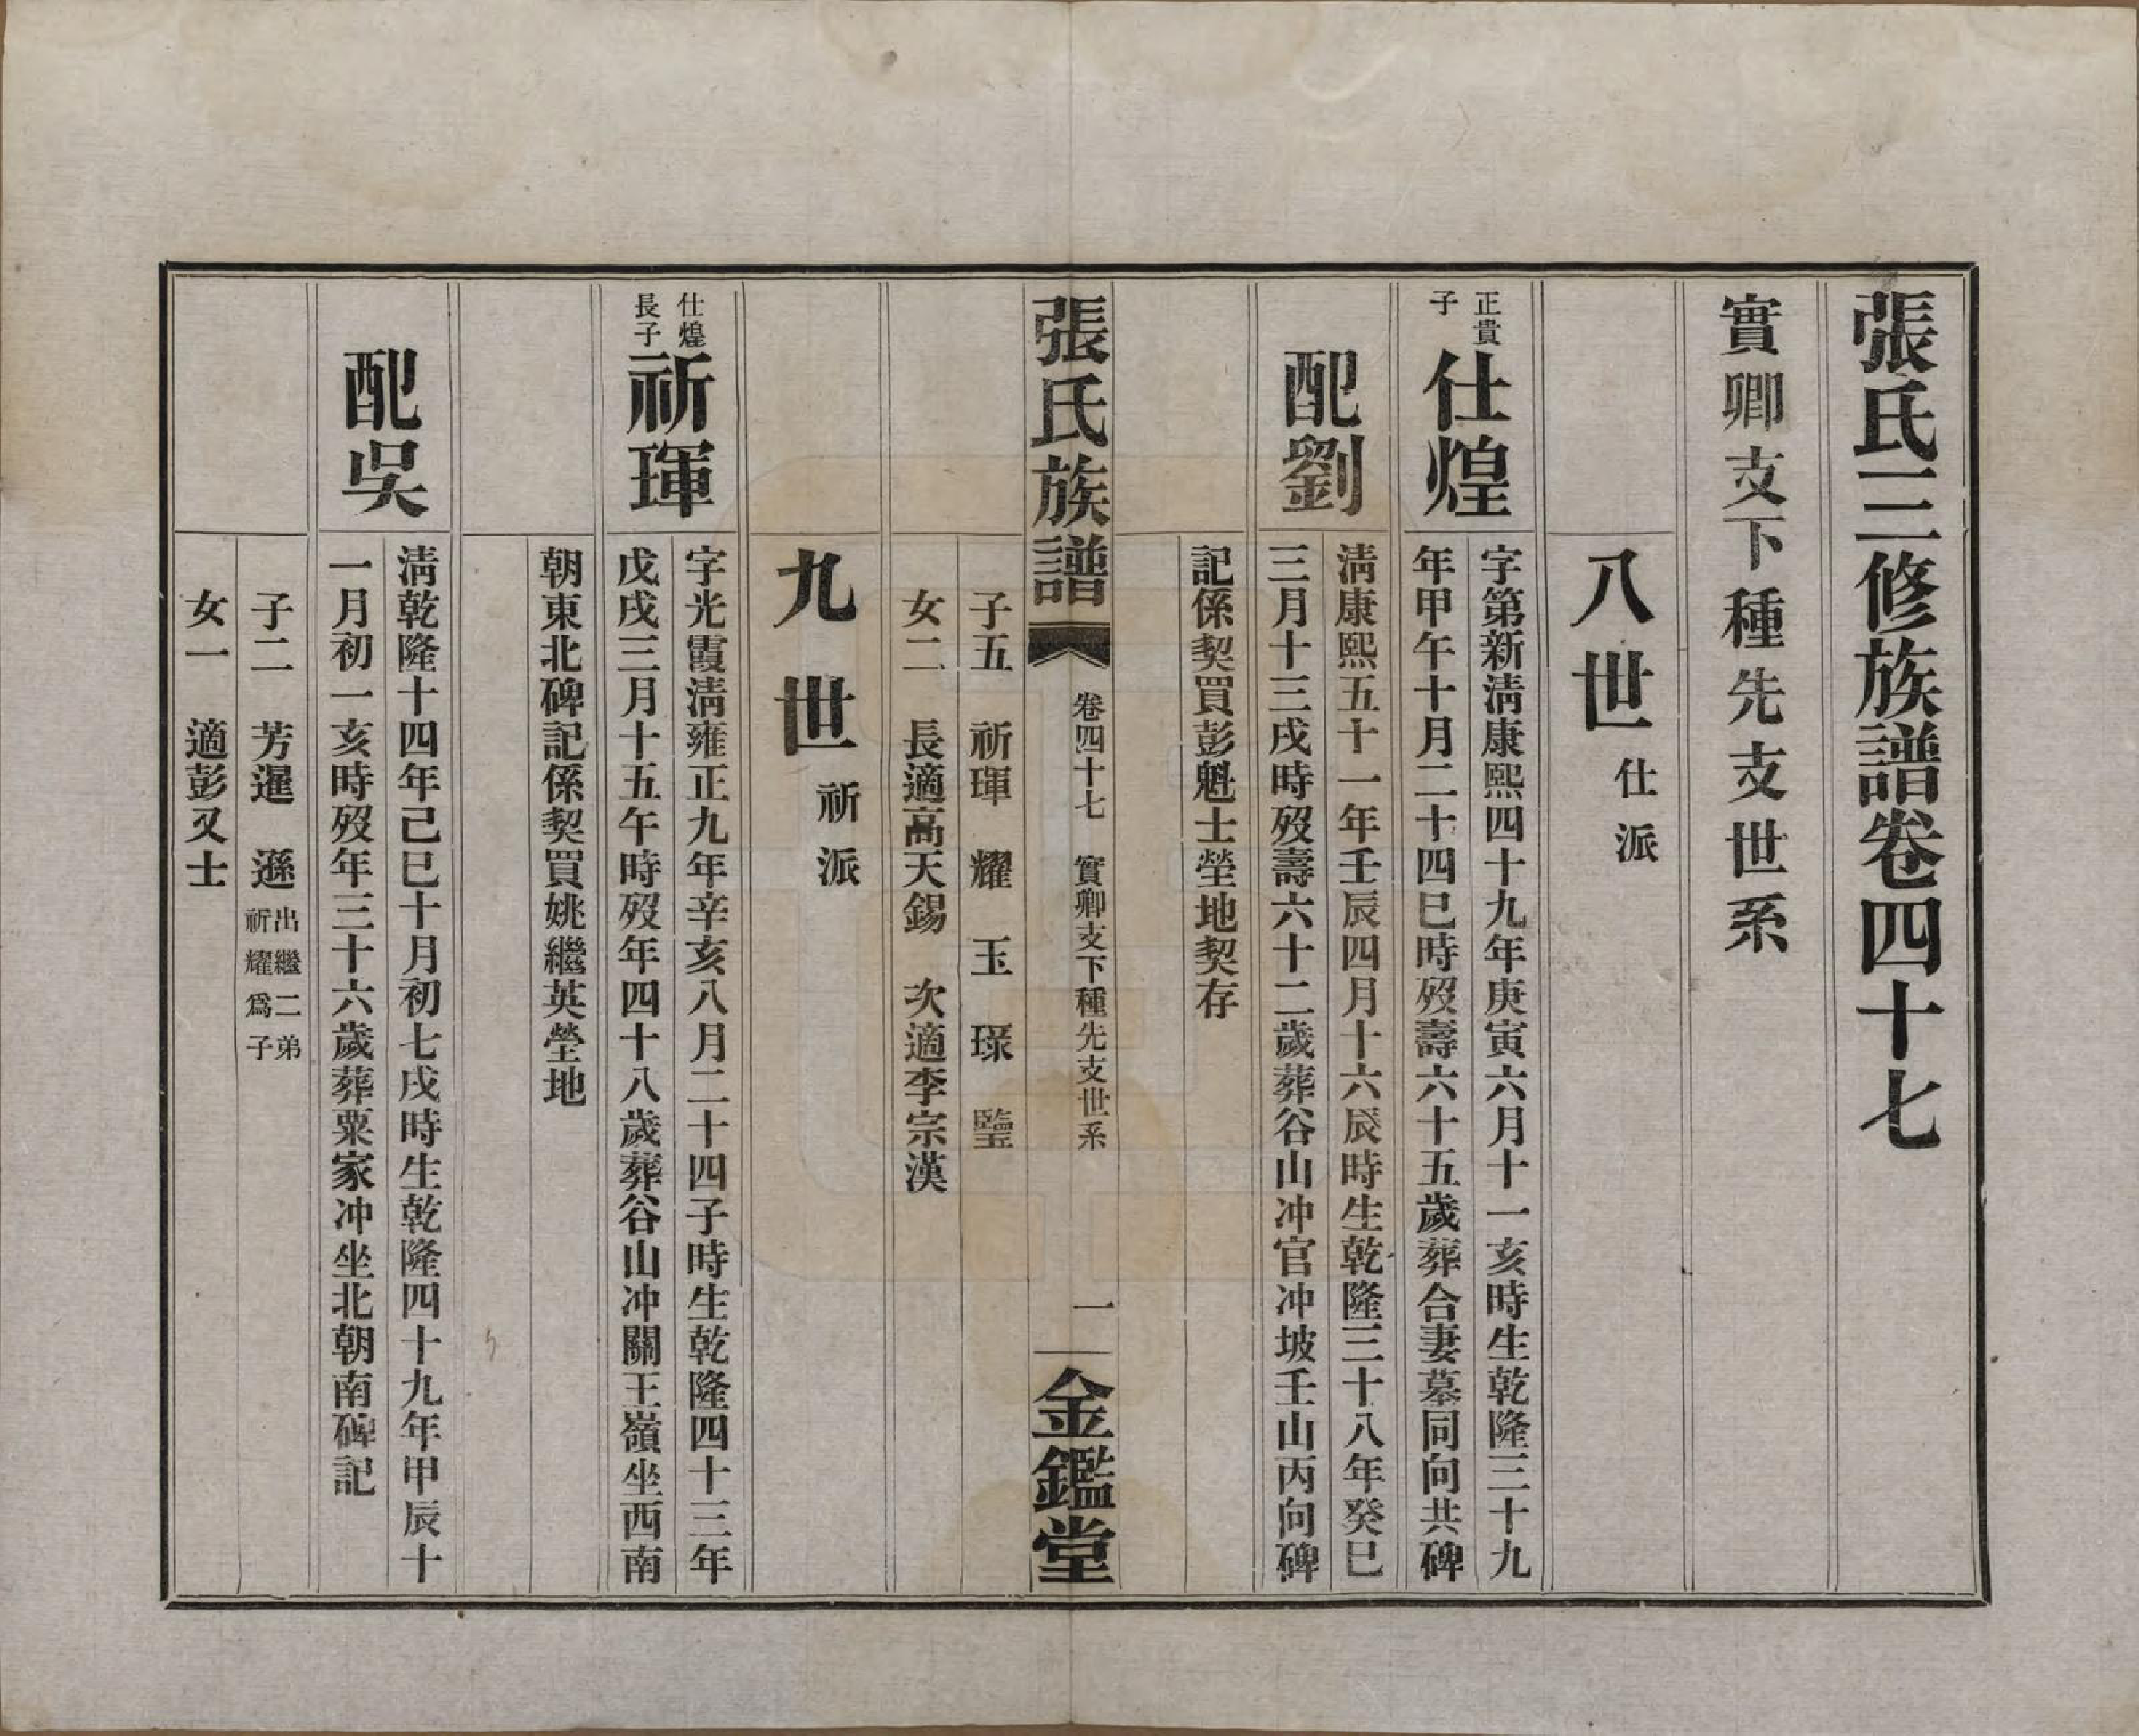 張氏三修族譜卷四十七
實卿支下種先支世系
八世 仕派
正貴
子
仕煌
字第新淸康熙四十九年庚寅六月十一亥時生乾隆三十九
年甲午十月二十四巳時歿壽六十五歲葬合妻墓同向共碑
配劉
淸康熙五十一年壬辰四月十六辰時生乾隆三十八年癸巳
三月十三戌時歿壽六十二歲葬谷山冲官冲坡壬山丙向碑
記係契買彭魁士塋地契存
張氏族譜 卷四十七 實卿支下種先支世系 一 金鑑堂
子五 祈琿 耀 玉 璪 鑒
女二 長適高天錫 次適李宗漢
九世 祈派
仕煌
長子
祈琿
字光霞淸雍正九年辛亥八月二十四子時生乾隆四十三年
戊戌三月十五午時歿年四十八歲葬谷山冲關王嶺坐西南
朝東北碑記係契買姚繼英塋地
配吳
淸乾隆十四年己巳十月初七戌時生乾隆四十九年甲辰十
一月初一亥時歿年三十六歲葬粟家冲坐北朝南碑記
子二 芳暹 遜 出繼二弟
祈耀爲子
女一 適彭又士